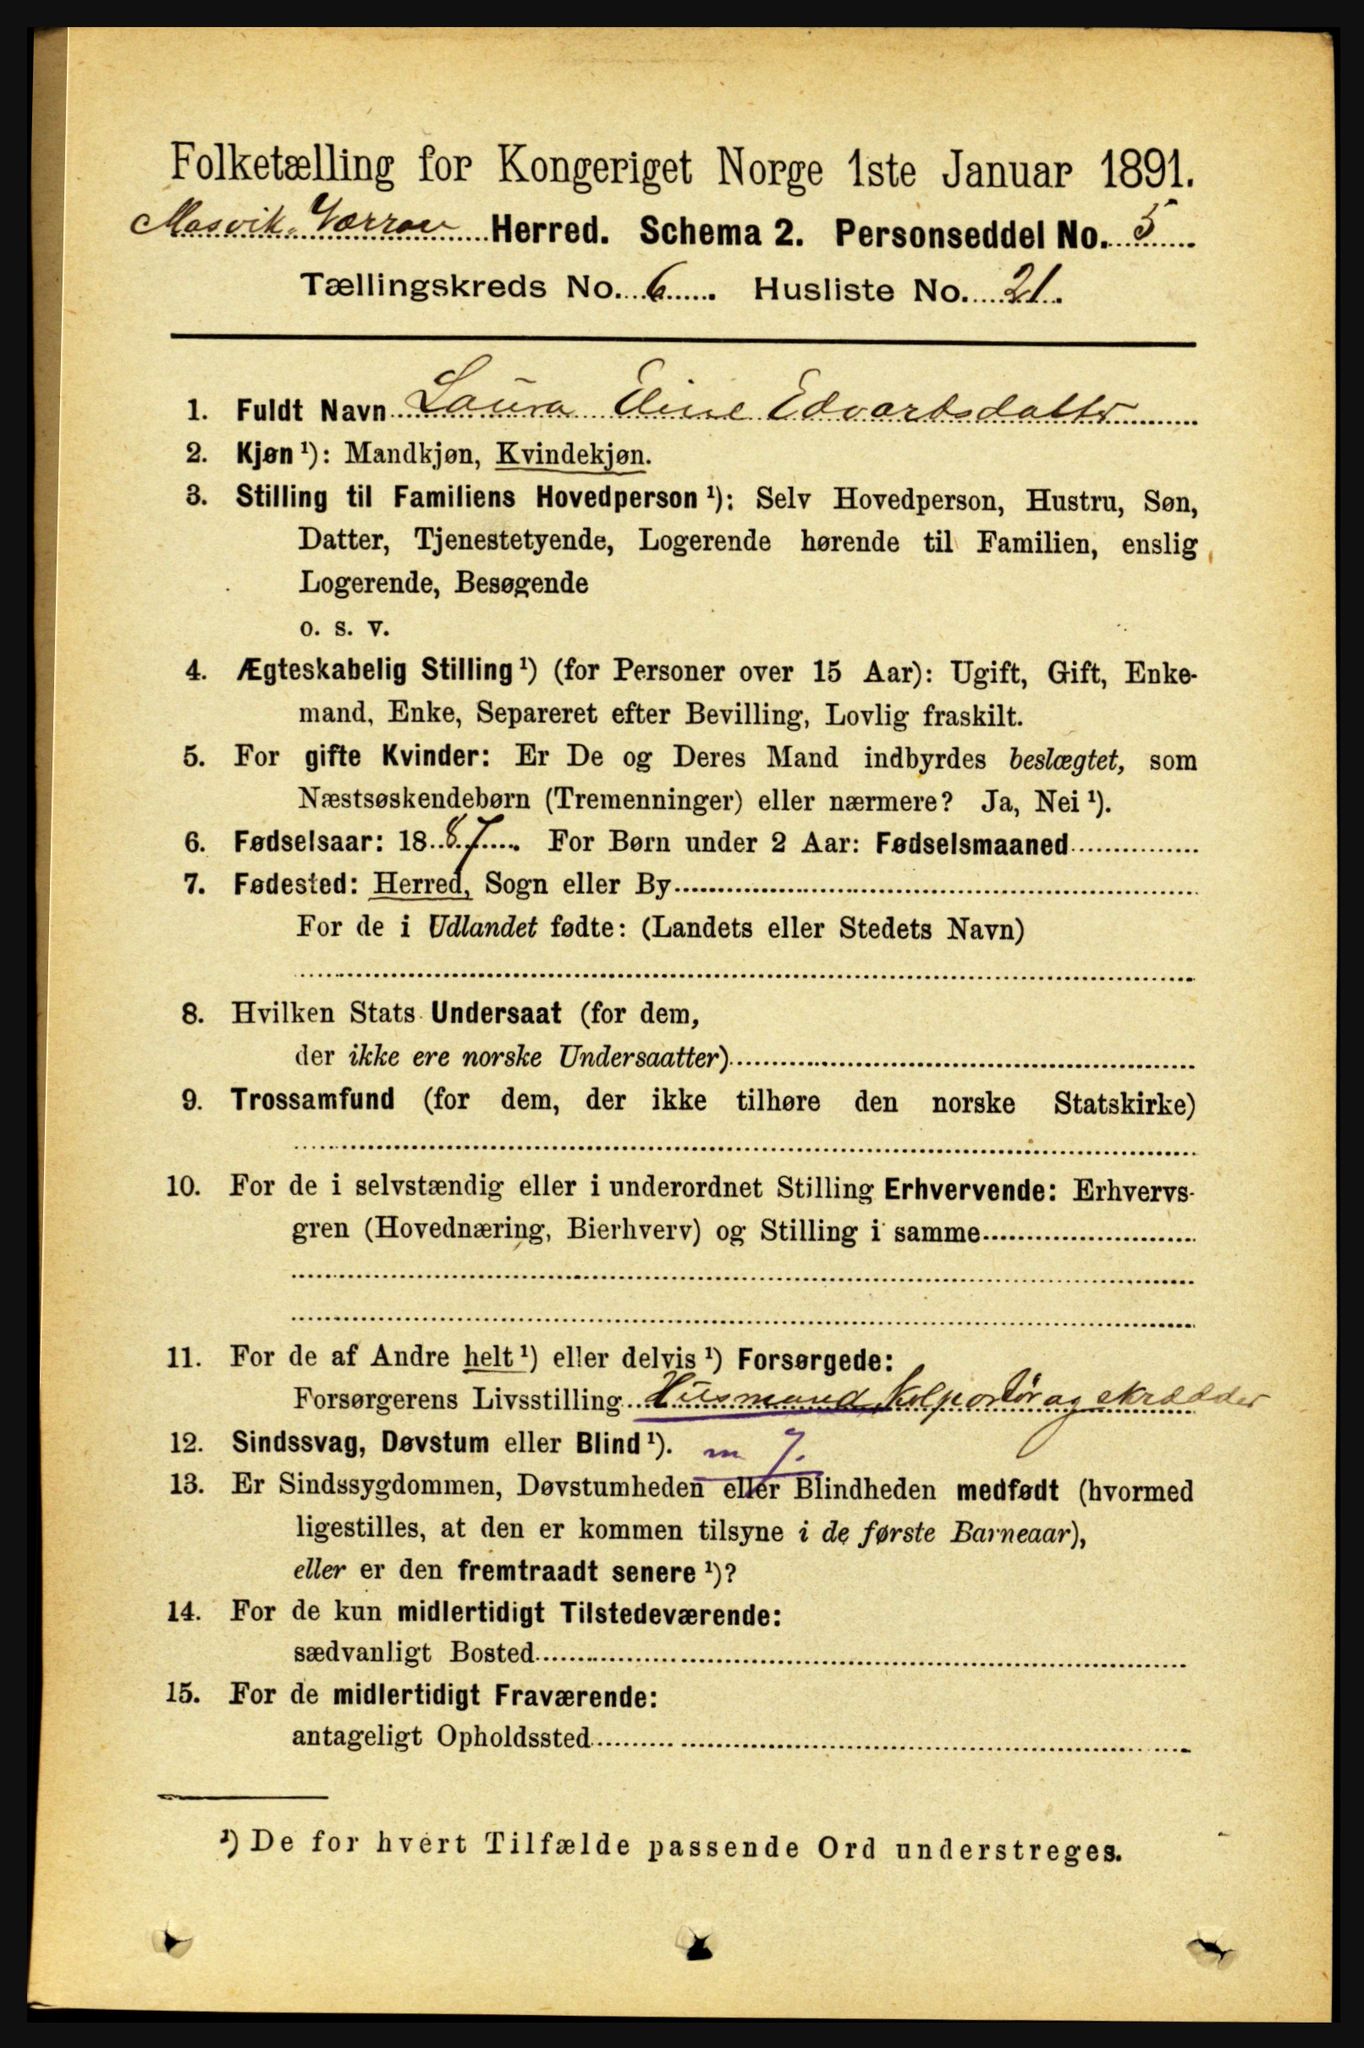 Folketælling for Kongeriget Norge 1ste Januar 1891.
Mosvik Værran Herred. Schema 2. Personseddel No. 5
Tællingskreds No. 6. Husliste No. 21.
1. Fuldt Navn Laura Eline Edvardsdatter
2. Kjøn ¹): Mandkjøn, Kvindekjøn.
3. Stilling til Familiens Hovedperson ¹): Selv Hovedperson, Hustru, Søn,
Datter, Tjenestetyende, Logerende hørende til Familien, enslig
Logerende, Besøgende
o. s. v.
4. Ægteskabelig Stilling ¹) (for Personer over 15 Aar): Ugift, Gift, Enke-
mand, Enke, Separeret efter Bevilling, Lovlig fraskilt.
5. For gifte Kvinder: Er De og Deres Mand indbyrdes beslægtet, som
Næstsøskendebørn (Tremenninger) eller nærmere? Ja, Nei ¹).
6. Fødselsaar: 1887. For Børn under 2 Aar: Fødselsmaaned
7. Fødested: Herred, Sogn eller By
For de i Udlandet fødte: (Landets eller Stedets Navn)
8. Hvilken Stats Undersaat (for dem,
der ikke ere norske Undersaatter)
9. Trossamfund (for dem, der ikke tilhøre den norske Statskirke)
10. For de i selvstændig eller i underordnet Stilling Erhvervende: Erhvervs-
gren (Hovednæring, Bierhverv) og Stilling i samme
11. For de af Andre helt ¹) eller delvis ¹) Forsørgede:
Forsørgerens Livsstilling Husmand, Kolportør og skrædder
12. Sindssvag, Døvstum eller Blind ¹). m 7.
13. Er Sindssygdommen, Døvstumheden eller Blindheden medfødt (hvormed
ligestilles, at den er kommen tilsyne i de første Barneaar),
eller er den fremtraadt senere ¹)?
14. For de kun midlertidigt Tilstedeværende:
sædvanligt Bosted
15. For de midlertidigt Fraværende:
antageligt Opholdssted
¹) De for hvert Tilfælde passende Ord understreges.